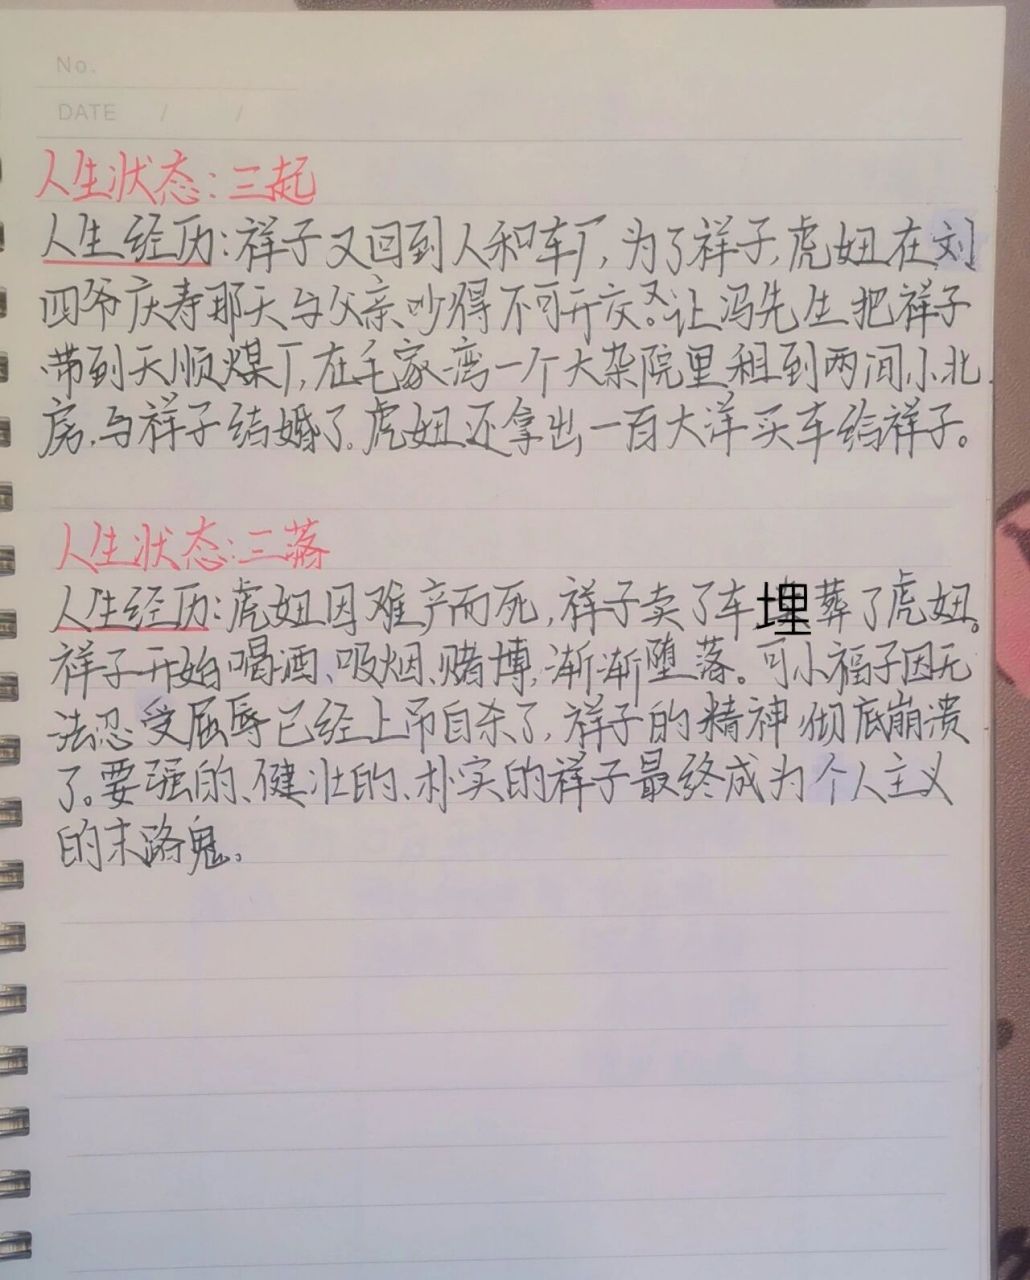 No.
DATE / /
人生状态:三起
人生经历:祥子又回到人和车厂,为了祥子,虎妞在刘
四爷庆寿那天与父亲吵得不可开交。又让冯先生把祥子
带到天顺煤厂,在毛家湾一个大杂院里租到两间小北
房,与祥子结婚了。虎妞还拿出一百大洋买车给祥子。
人生状态:三落
人生经历:虎妞因难产而死,祥子卖了车埋葬了虎妞。
祥子开始喝酒、吸烟、赌博,渐渐堕落。可小福子因无
法忍受屈辱已经上吊自杀了,祥子的精神彻底崩溃
了。要强的、健壮的、朴实的祥子最终成为个人主义
的末路鬼。